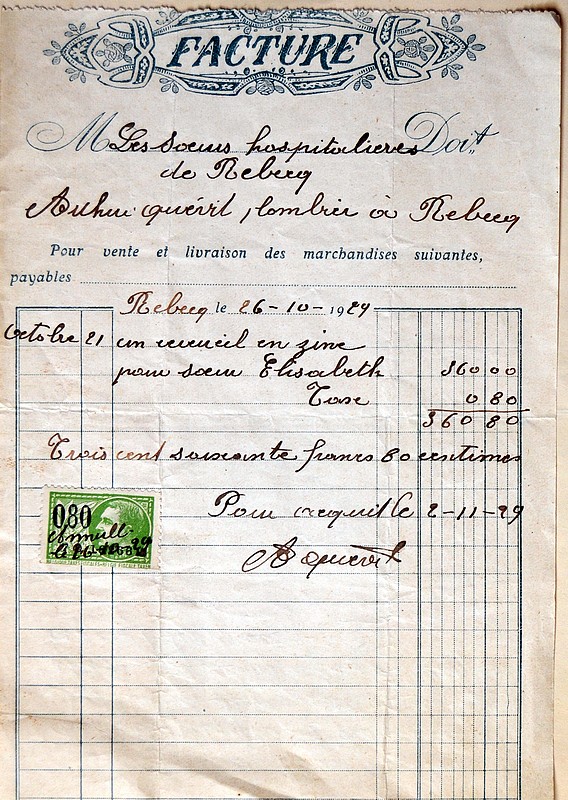 FACTURE
M Les Soeurs hospitalieres Doit
de Rebecq
Arthur quévit, plombier à Rebecq
Pour vente et livraison des marchandises suivantes,
payables
Rebecq le 26-10-1929
Octobre 21 un cercueil en zinc
pour soeur Elisabeth 360 00
Taxe 0 80
360 80
Trois cent soixante francs 80 centimes
0,80
annulé
le 26-10-29
Pour acquit le 2-11-29
A quévit